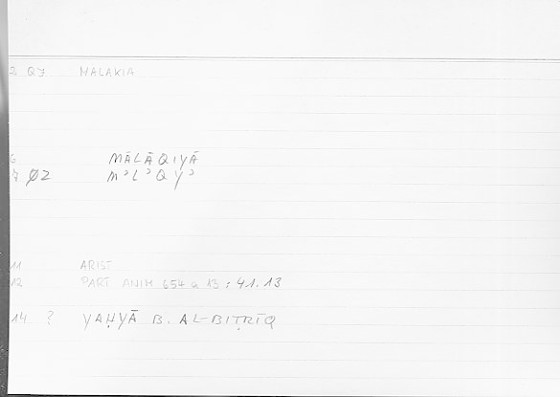 2 Q7 MALAKIA
6 MĀLĀQIYĀ
7 Ø2 MʾLʾQYʾ
11 ARIST
12 PART ANIM 654 a 13 : 41.13
14 ? YAḤYĀ B. AL-BIṬRĪQ